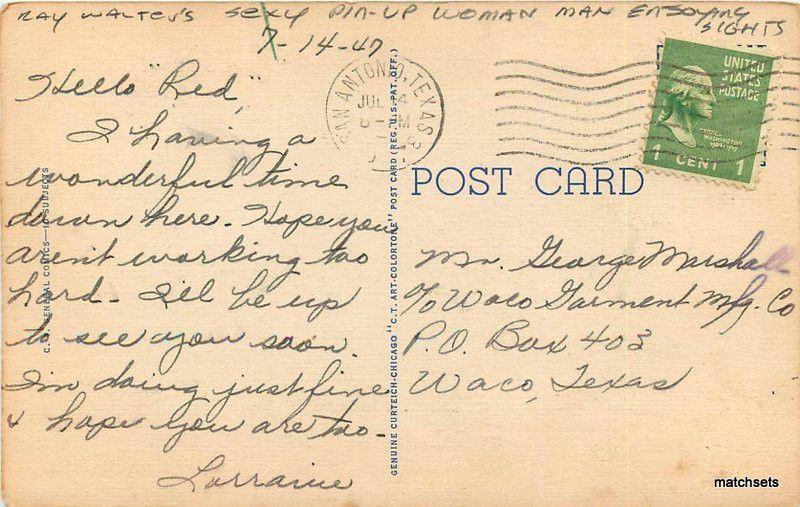 RAY WALTER'S SEXY PIN-UP WOMAN MAN ENJOYING SIGHTS
7-14-47
Hello "Red",
I having a
wonderful time
down here. Hope you
aren't working too
hard - I'll be up
to see you soon.
I'm doing just fine
& hope you are too -
Lorraine
C.T. GENERAL COMICS—10 SUBJECTS
GENUINE CURTEICH-CHICAGO "C.T. ART-COLORTONE" POST CARD (REG. U.S. PAT. OFF.)
SAN ANTONIO, TEXAS 3
JUL 14
6 M
UNITED
STATES
POSTAGE
GEORGE
WASHINGTON
1789-1797
1 CENT 1
POST CARD
Mr. George Marshall
c/o Waco Garment Mfg. Co
P.O. Box 403
Waco, Texas
matchsets